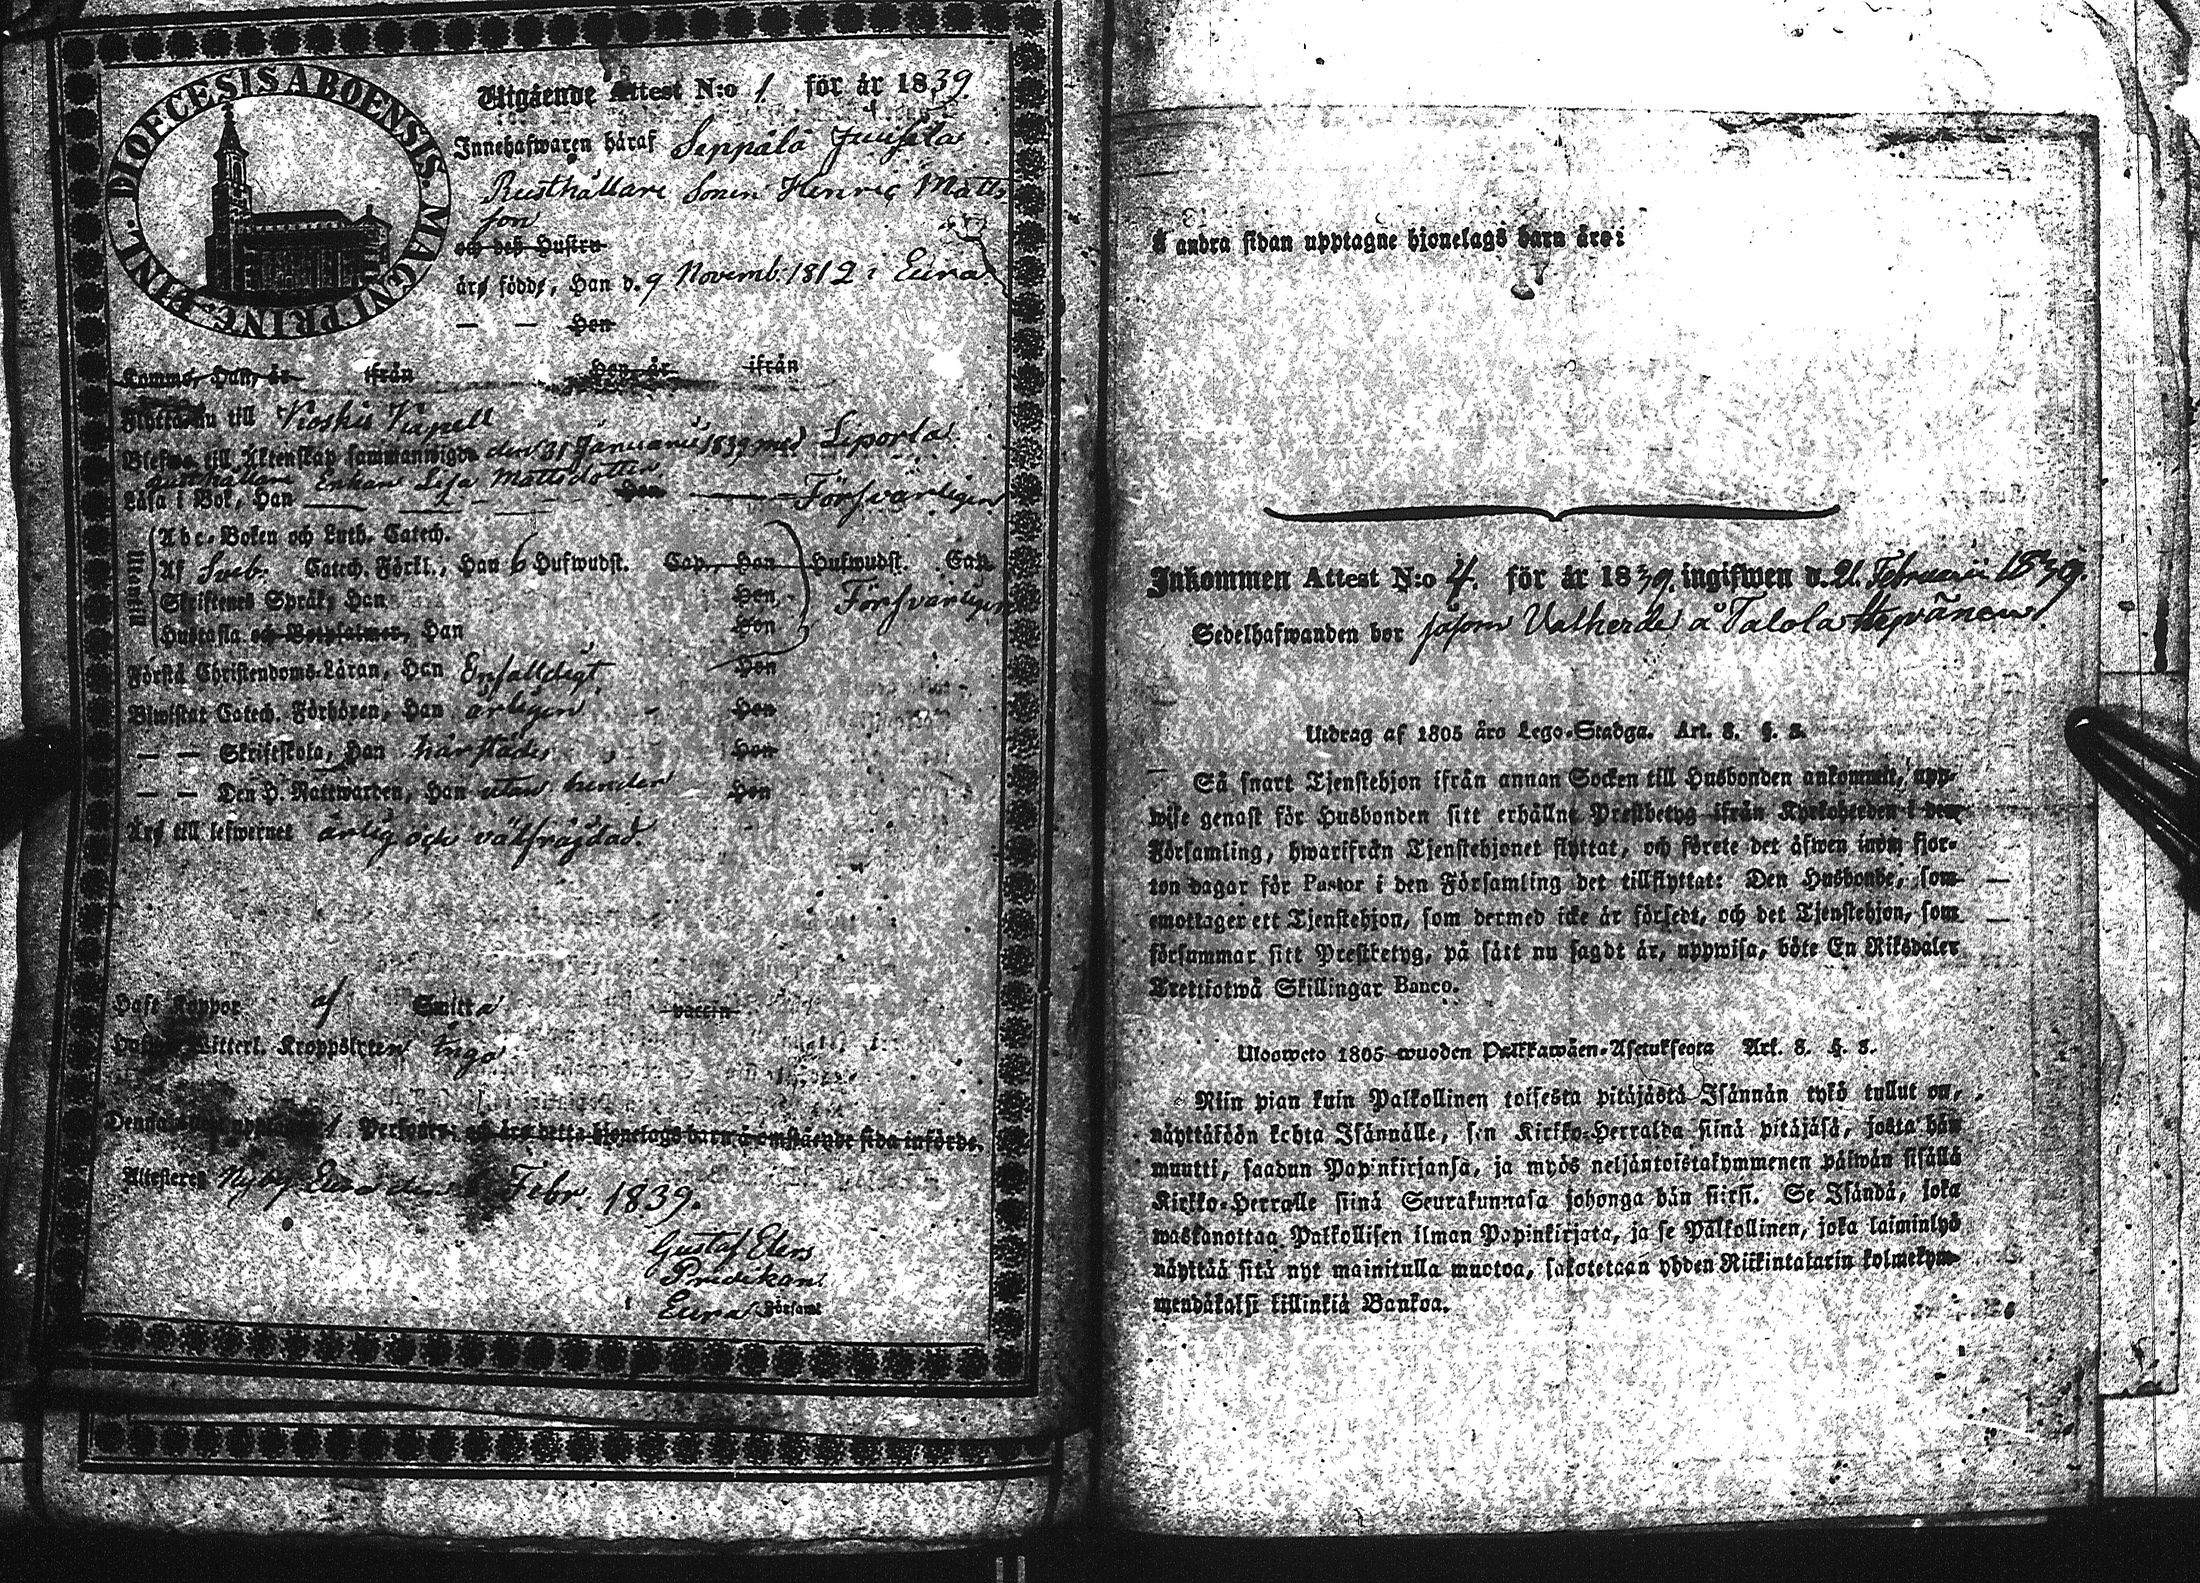 DIOECESIS ABOENSIS. MAGNI PRINC. FINL.
Utgående Attest N:o 1 för år 1839
Innehafwaren häraf Seppälä Juusela
Rusthållare Sonen Henric Matts
son
och deß Hustru
äro födde, Han d. 9 Novemb. 1812 i Eura
— — Hon
Komme, Han, år ifrån Hon, år ifrån
till Kioskis Kapell
Blefwo till Äktenskap sammanwigde den 31 Januarii 1839 med Leporla
Rusthållare Enkan Lisa Mattsdotter
Läsa i Bok, Han Hon Försvarligen
Utantill
Abc-Boken och Luth. Catech.
Af Sveb. Catech. Förkl., Han 6 Hufwudst. Cap., Hon Hufwudst. Cap.
Skriftenes Språk, Han Hon Försvarligen
Hustafla och Botpsalmer, Han Hon
Förstå Christendoms-Läran, Han Enfaldigt Hon
Biwistat Catech. Förhören, Han årligen Hon
— — Skriftskola, Han härstädes Hon
— — Den H. Nattwarden, Han utan hinder Hon
Äro till lefwernet ärlig och välfräjdad.
Haft Koppor af Smitta vaccin
Kroppslyten Inga
Denna 1 Personer; och äro detta hjonelags barn å omstående sida införde.
Attesteres Nyby Eura den Febr. 1839.
Gustaf Elers
Predikant
Eura Församl
Å andra sidan upptagne hjonelags barn äro:
Inkommen Attest N:o 4. för år 1839. ingifwen d. 21. Februarii 1839.
Sedelhafwanden bor såsom å Talola
Utdrag af 1805 års Lego-Stadga. Art. 8. §. 3.
Så snart Tjenstehjon ifrån annan Socken till Husbonden ankommit, upp-
wise genast för Husbonden sitt erhållne Prestbetyg ifrån Kyrkoherden i den
Församling, hwarifrån Tjenstehjonet flyttat, och förete det äfwen inom fjor-
ton dagar för Pastor i den Församling det tillflyttat: Den Husbonde, som
emottager ett Tjenstehjon, som dermed icke är försedt, och det Tjenstehjon, som
försummar sitt Prestbetyg, på sätt nu sagdt är, uppwisa, böte En Riksdaler
Trettiotwå Skillingar Banco.
Ulosweto 1805 wuoden Palkkawäen-Asetuksesta Art. 8. §. 3.
Niin pian kuin Palkollinen toisesta pitäjästä Isännän tykö tullut on,
näyttäköön kohta Isännälle, sen Kirkko-Herralda siinä pitäjäsä, josta hän
muutti, saadun Papinkirjansa, ja myös neljäntoistakymmenen päiwän sisällä
Kirkko-Herralle siinä Seurakunnasa johonga hän siirsi. Se Isändä, joka
wastanottaa Palkollisen ilman Papinkirjata, ja se Palkollinen, joka laiminlyö
näyttää sitä nyt mainitulla muotoa, sakotetaan yhden Riikintalarin kolmekym-
mendäkaksi killinkiä Bankoa.